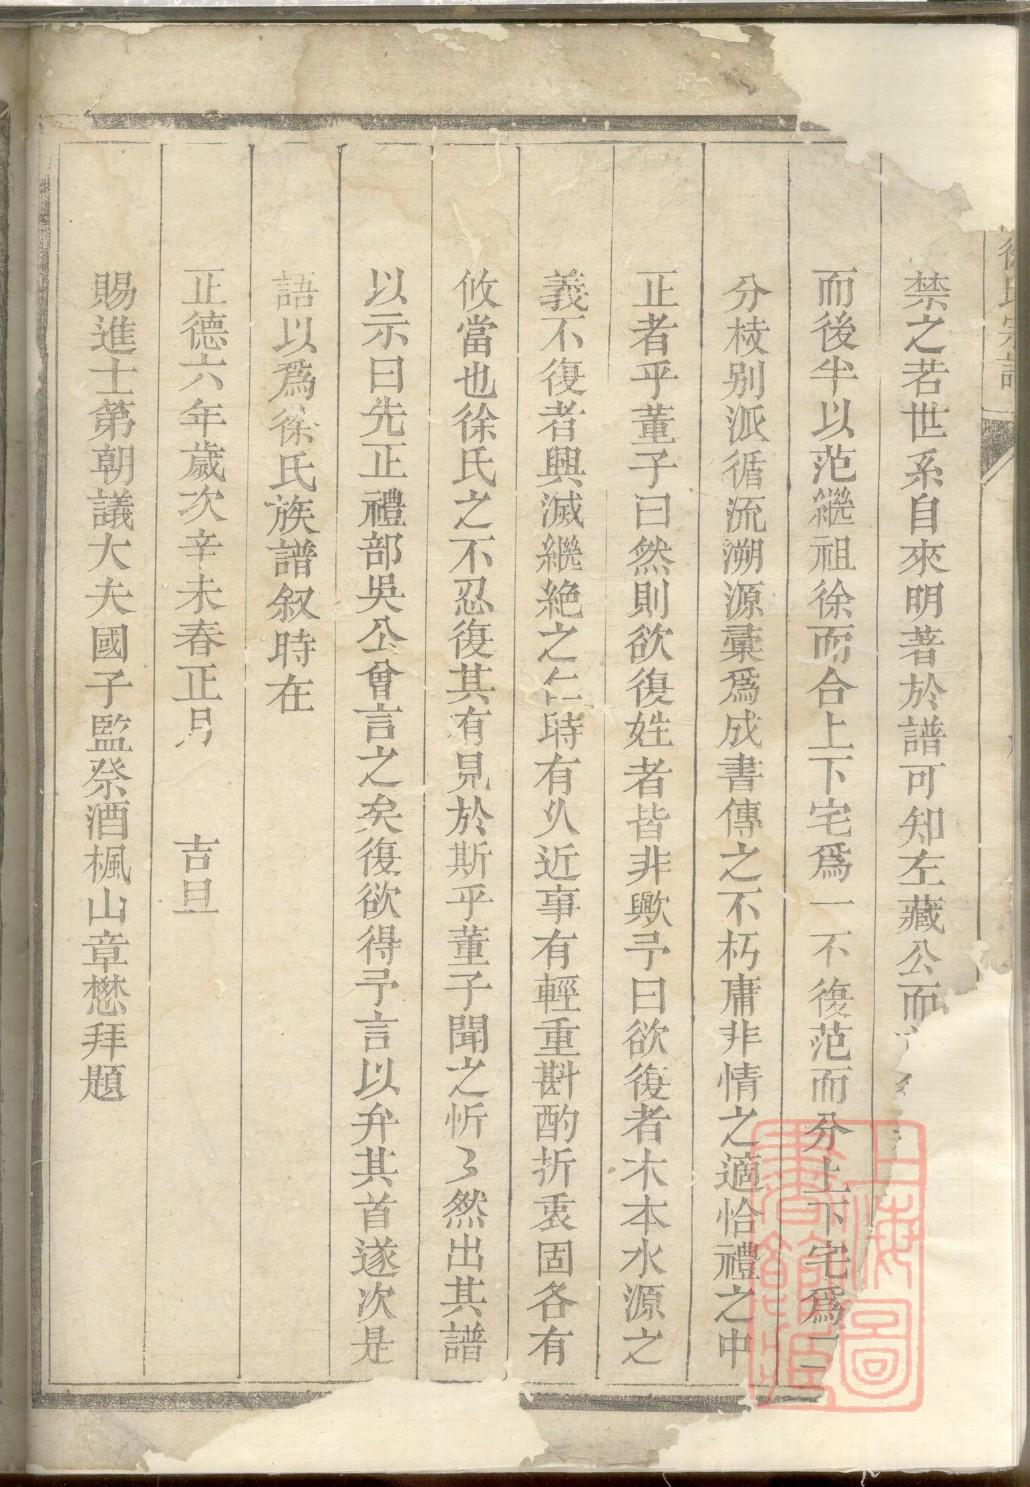 徐氏宗譜
禁之若世系自來明著於譜可知左藏公而
而後半以范繼祖徐而合上下宅爲一不復范而分上下宅爲二
分枝别派循流溯源彙爲成書傳之不朽庸非情之適恰禮之中
正者乎董子曰然則欲復姓者皆非歟予曰欲復者木本水源之
義不復者興滅繼絶之仁時有久近事有輕重斟酌折衷固各有
攸當也徐氏之不忍復其有見於斯乎董子聞之忻々然出其譜
以示曰先正禮部吳公曾言之矣復欲得予言以弁其首遂次是
語以爲徐氏族譜叙時在
正德六年歲次辛未春正月 吉旦
賜進士第朝議大夫國子監祭酒楓山章懋拜題
上海圖書館藏